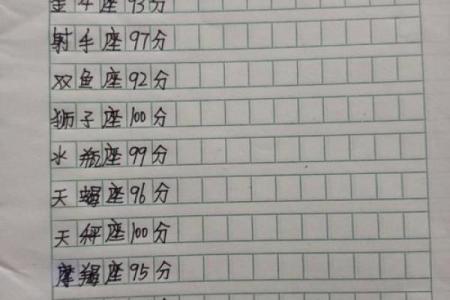 金牛座93分
射手座97分
双鱼座92分
狮子座100分
水瓶座99分
天蝎座96分
天秤座100分
摩羯座95分